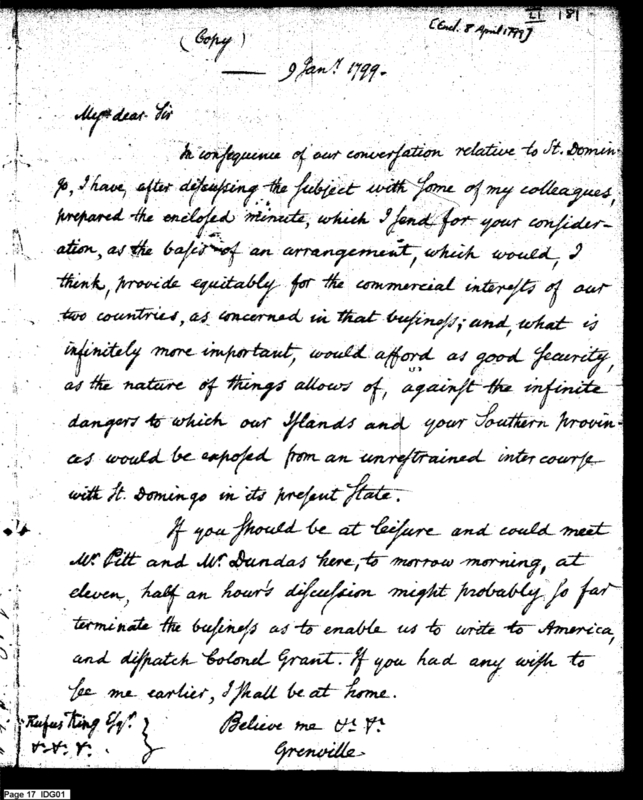 [Encl. 8 April 1799]
21
181
(Copy)
9 Jany. 1799.
My dear Sir
In consequence of our conversation relative to St. Domin-
go, I have, after discussing the subject with some of my colleagues,
prepared the enclosed minute, which I send for your consider-
ation, as the basis of an arrangement, which would, I
think, provide equitably for the commercial interests of our
two countries, as concerned in that business; and, what is
infinitely more important, would afford as good security,
as the nature of things allows of, against the infinite
dangers to which our Islands and your Southern Provin-
ces would be exposed from an unrestrained intercourse
with St. Domingo in its present State.
If you should be at leisure and could meet
Mr. Pitt and Mr. Dundas here, to morrow morning, at
eleven, half an hour's discussion might probably so far
terminate the business as to enable us to write to America,
and dispatch Colonel Grant. If you had any wish to
see me earlier, I shall be at home.
Rufus King Esqr. } Believe me &c. &c.
&c. &c. &c. Grenville
Page 17 IDG01